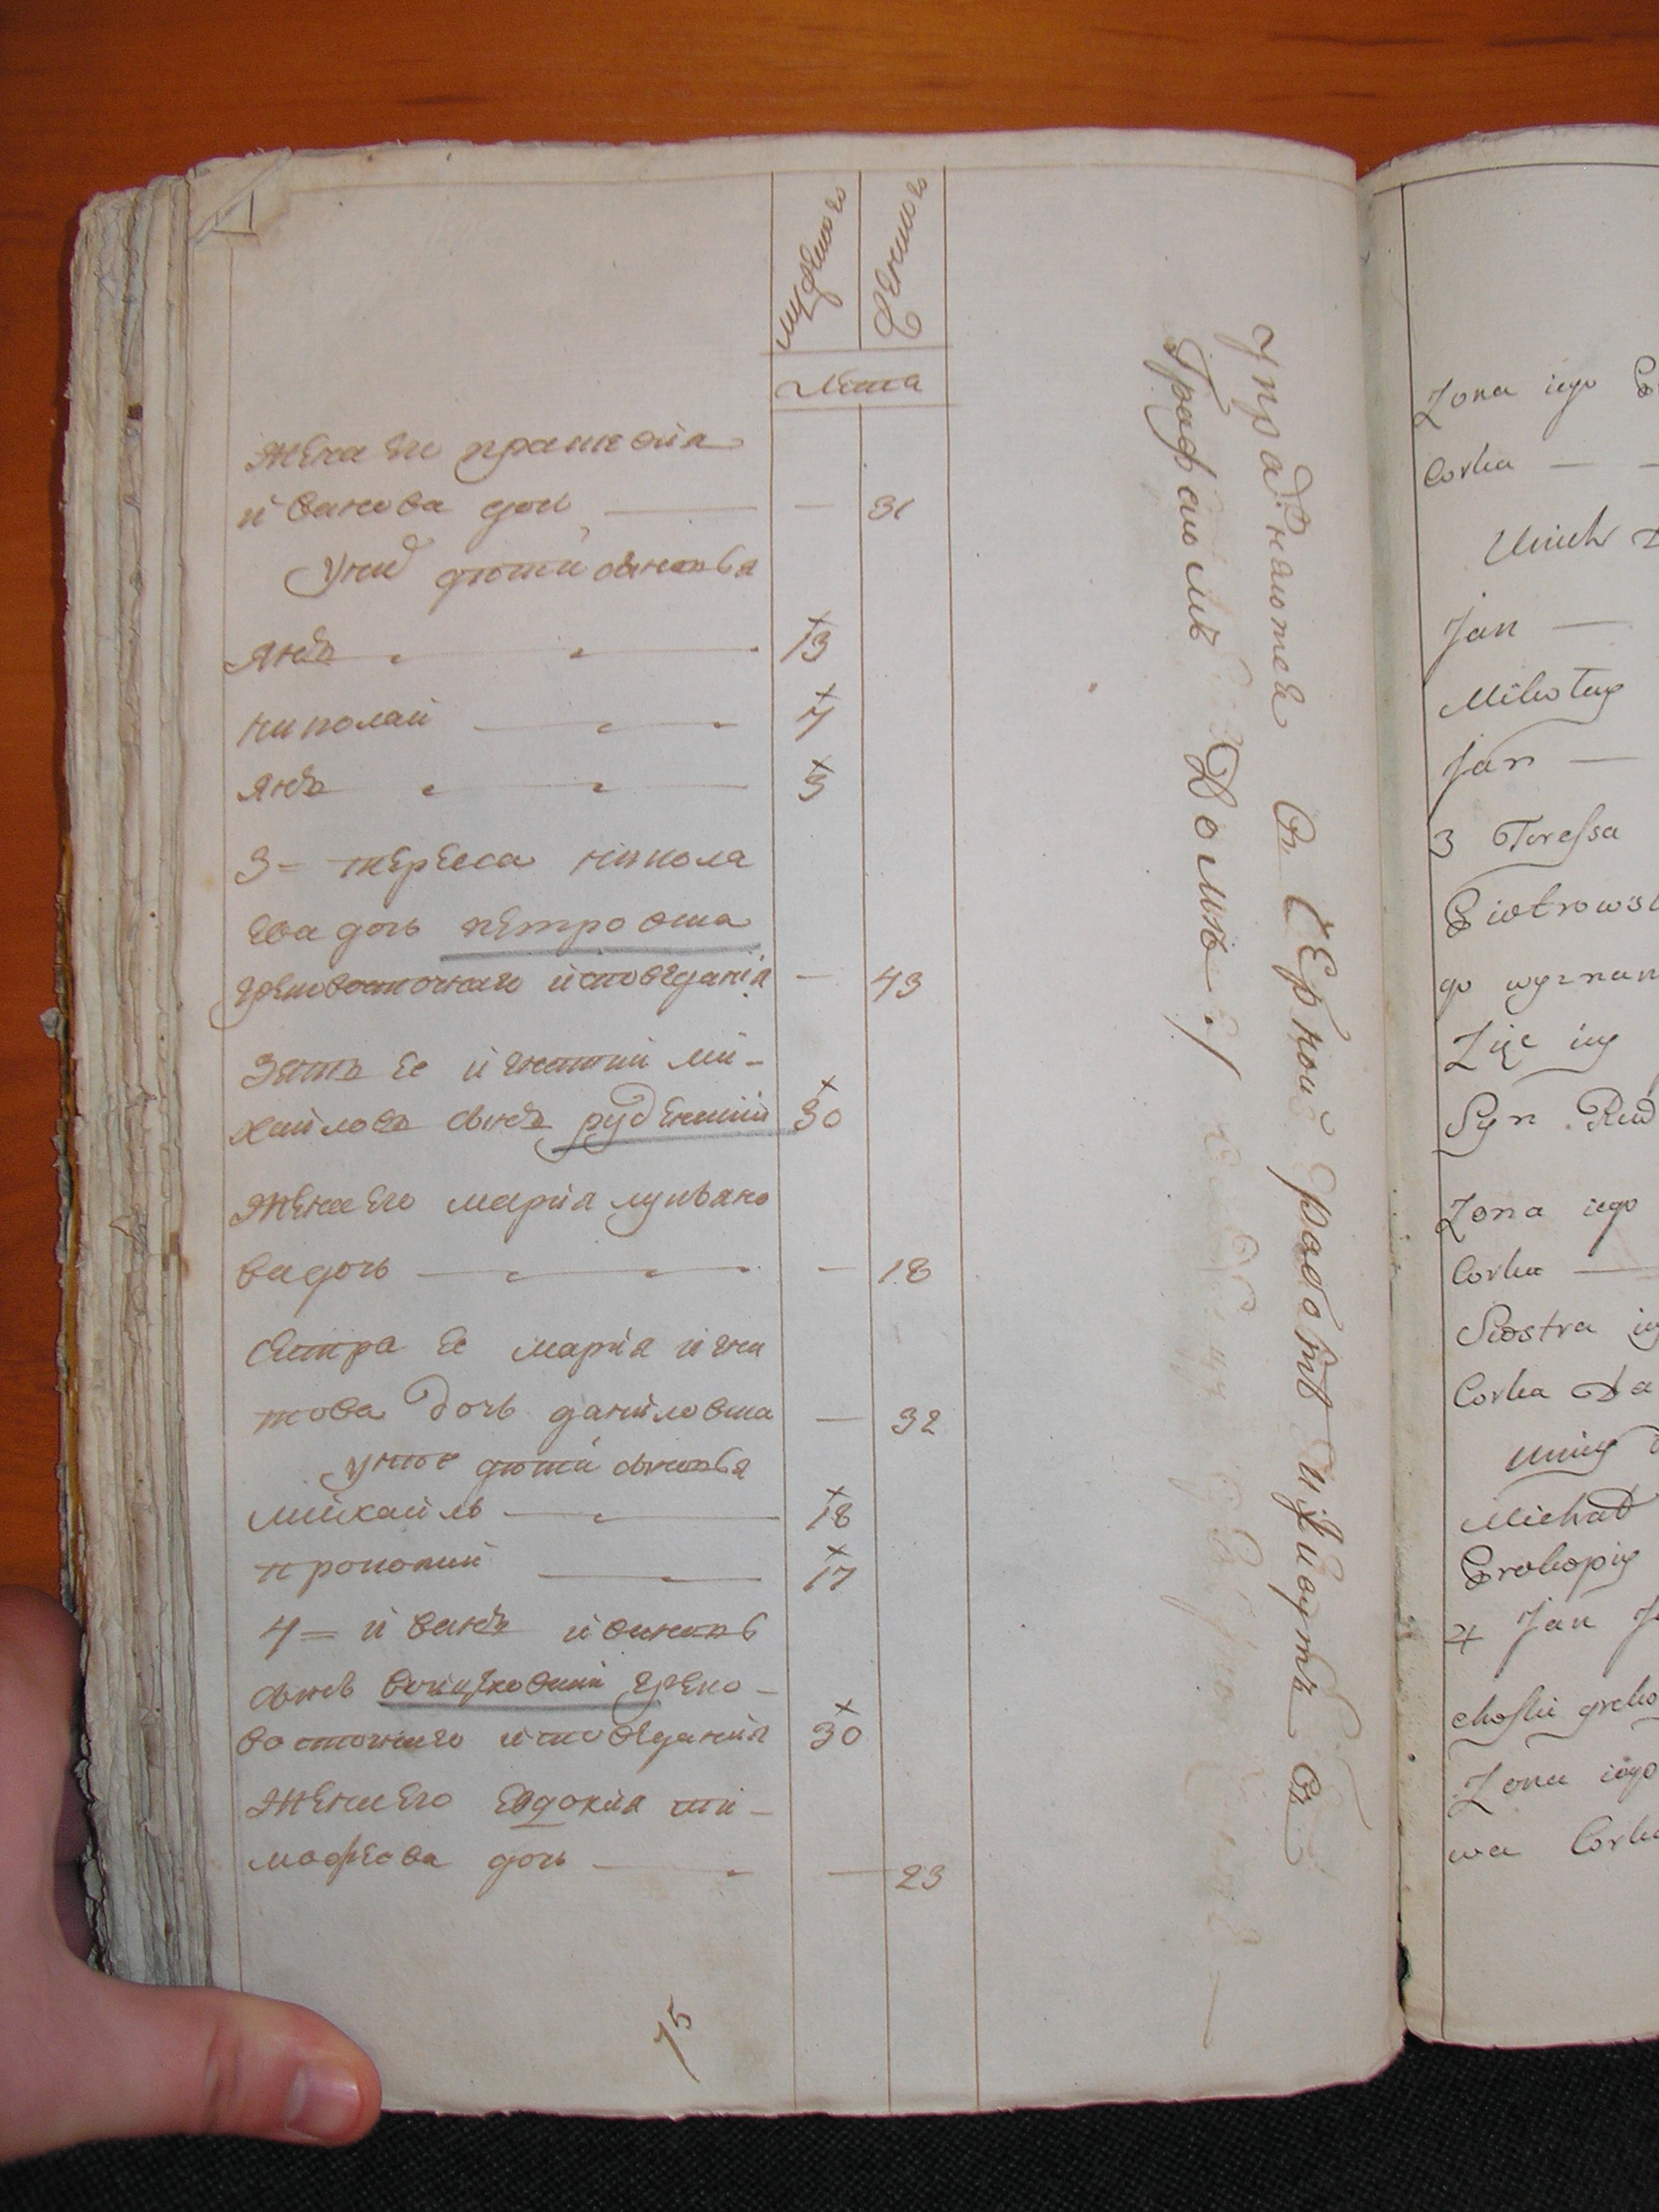 мужеского
женского
Лета
жена его
иванова дочь — — 31
у них дети сыновья
янъ — 13
николай — 7
янъ — 3
3- тересса никола
ева дочь петровска
грековосточнаго исповеданія — 43
зять ее игнатий ми-
хайловъ сынъ рудзинский 30
жена его марія лукьяно
ва дочь — — 18
сестра ее марія игна
това дочь даниловска — 32
у нее дети сыновья
михайль — 18
прокопий — 17
4= иванъ ивановъ
сынъ греко-
восточнаго исповеданія 30
жена его евдокия ти-
мофеева дочь — — 23
15
упражняются въ черной работе и живутъ въ
Графскомъ Доме ./
Zona iego
Corka — —
Unich
Jan —
Mikołay
Jan —
3 Teressa
Piotrows
go wyznan
Zięc iey
Syn Rud
Zona iego
Corka —
Siostra ie
Corka Da
uniey
Michał
Prokopiy
4 Jan
choski greko
Zona iego
wa Corka